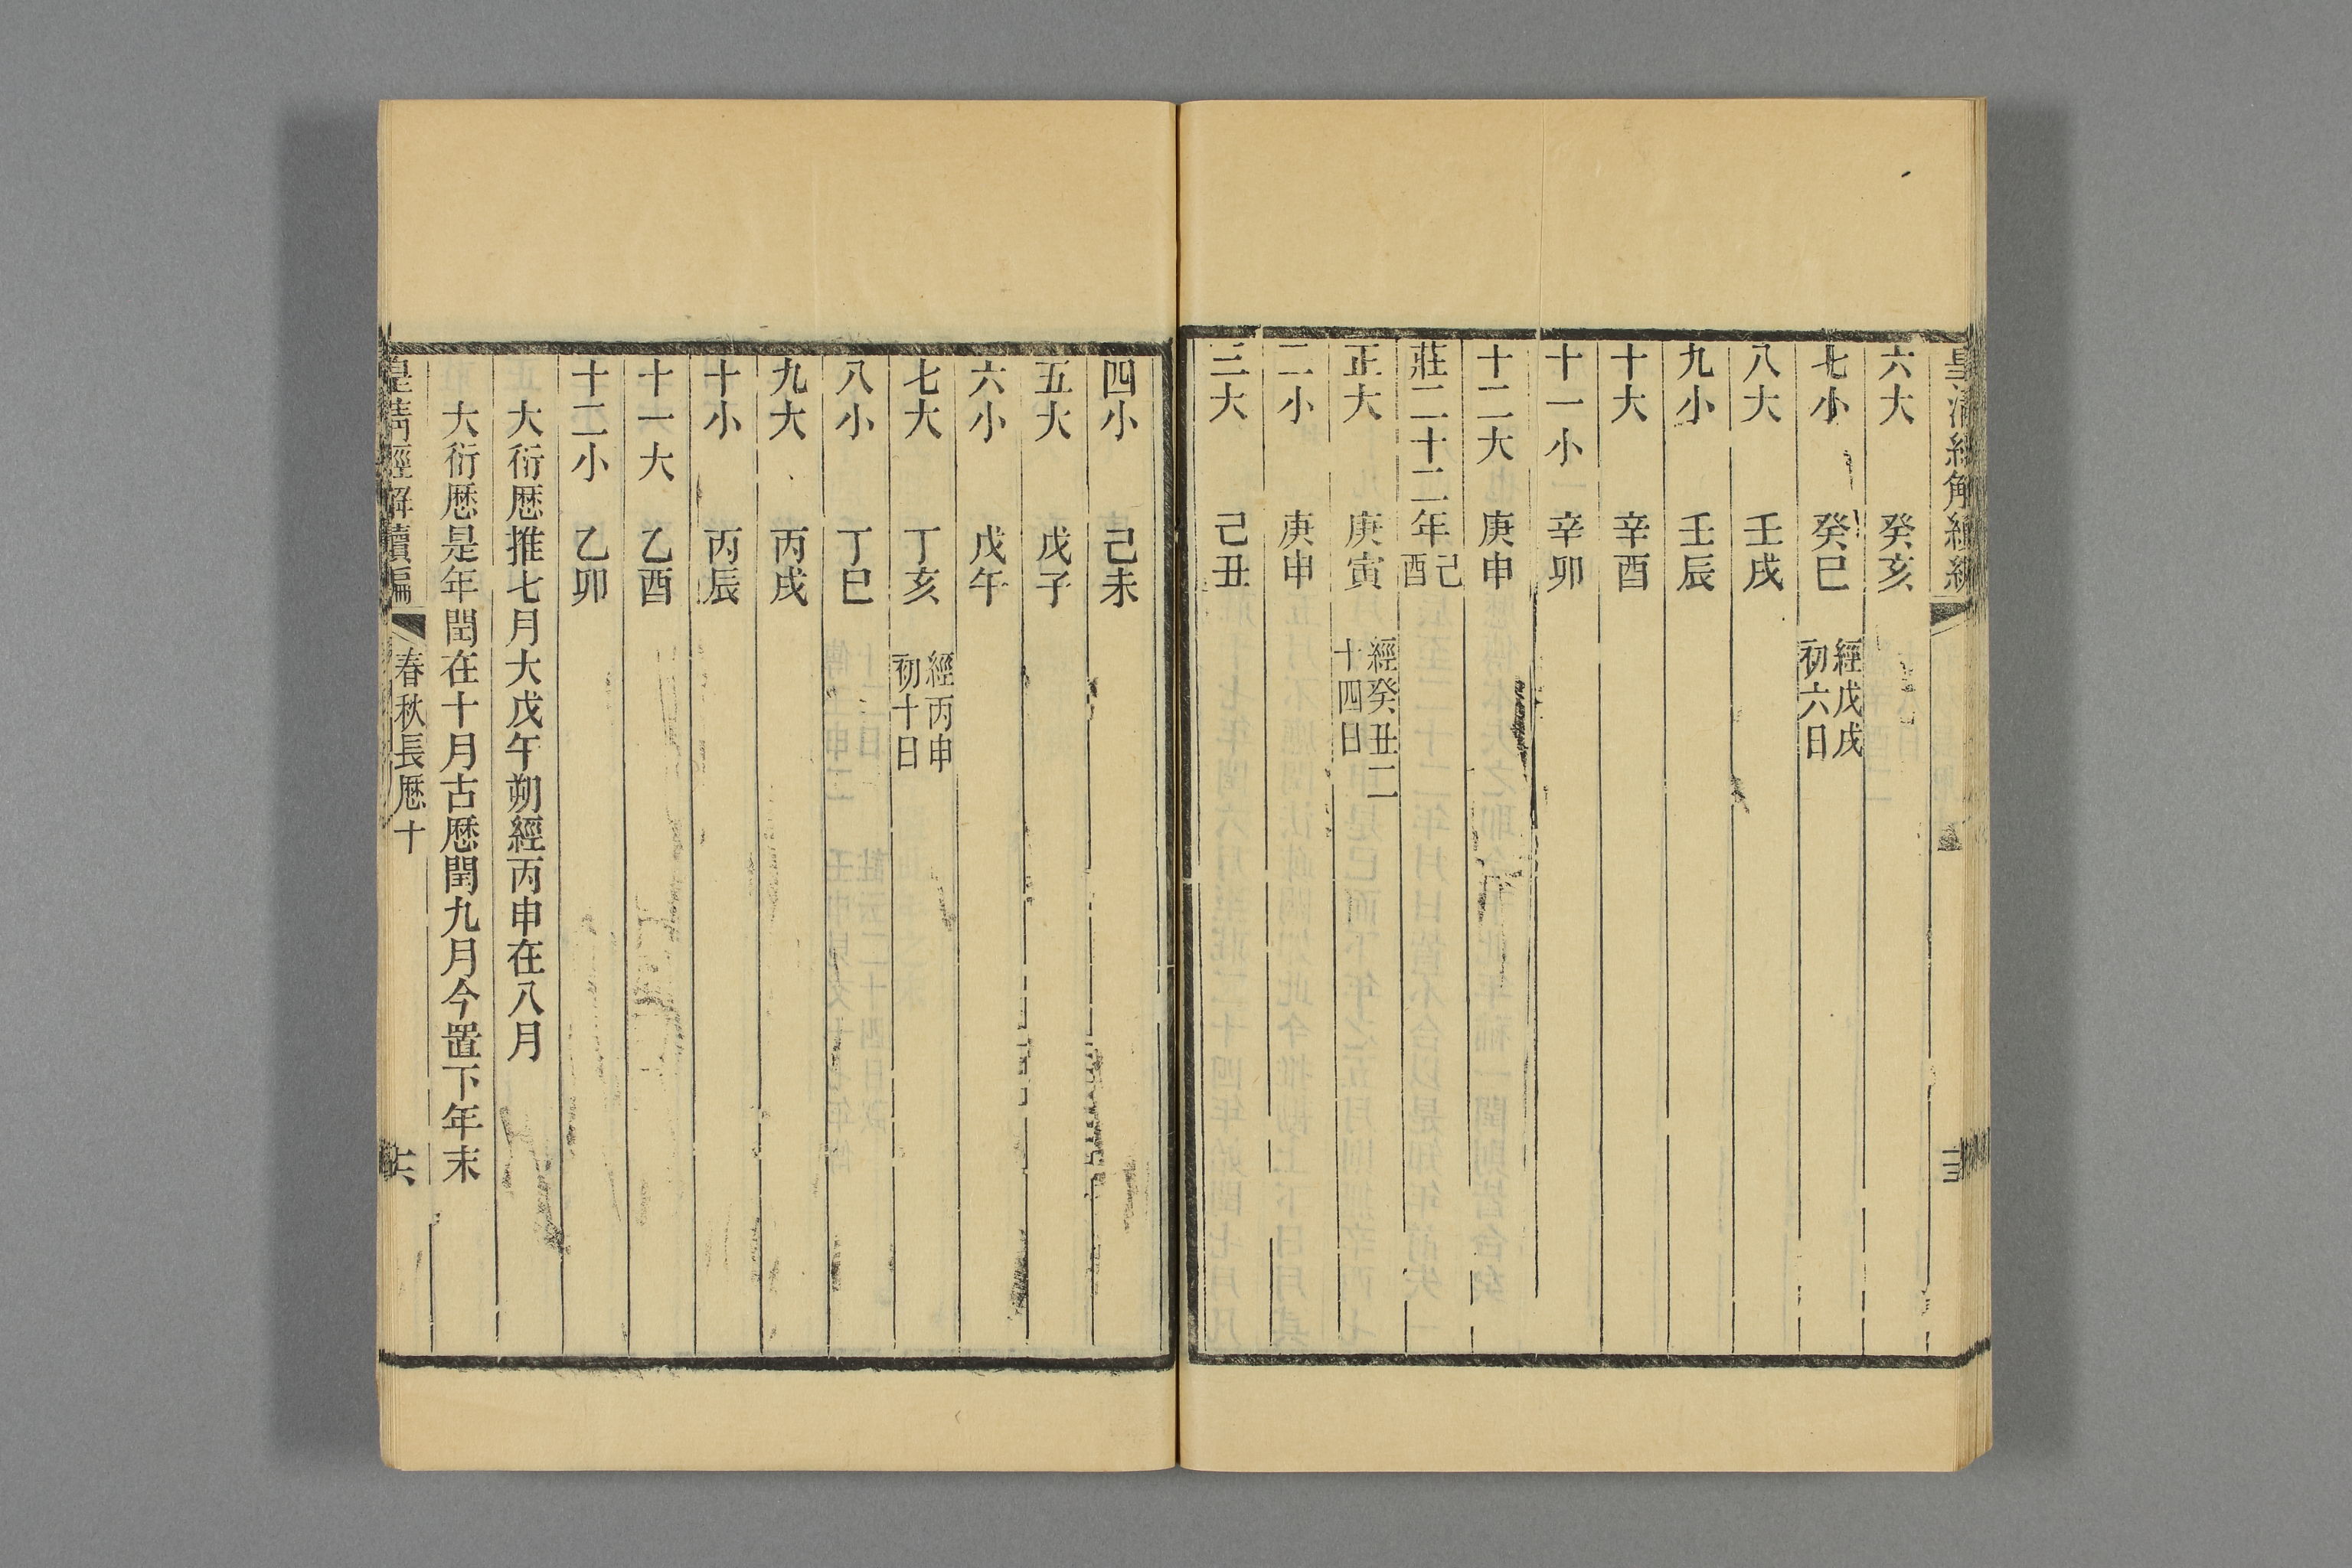 皇清經解續編
六大 癸亥
七小 癸巳 經戊戌初六日
八大 壬戌
九小 壬辰
十大 辛酉
十一小 辛卯
十二大 庚申
莊二十二年己酉
正大 庚寅 經癸丑二十四日
二小 庚申
三大 己丑
四小 己未
五大 戊子
六小 戊午
七大 丁亥 經丙申初十日
八小 丁巳
九大 丙戌
十小 丙辰
十一大 乙酉
十二小 乙卯
大衍厯推七月大戊午朔經丙申在八月
大衍厯是年閏在十月古厯閏九月今置下年末
皇清經解續編 春秋長厯十